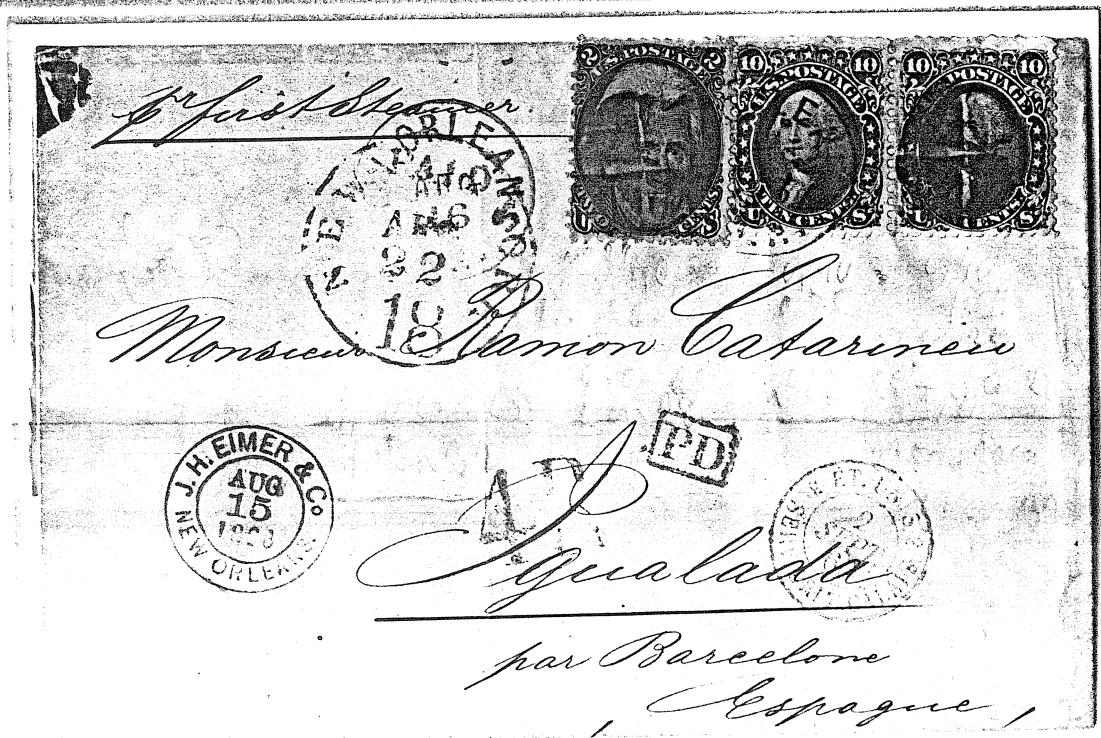 pr first Steamer.
2 U.S. POSTAGE 2
U CENTS S
10 U.S. POSTAGE 10
U TEN CENTS S
E
10 POSTAGE 10
U CENTS S
NEW ORLEANS
AUG
22
18
Monsieur Ramon Catarineu
PD
J. H. EIMER & Co
AUG
15
NEW ORLEANS.
Igualada
par Barcelone
Espagne,